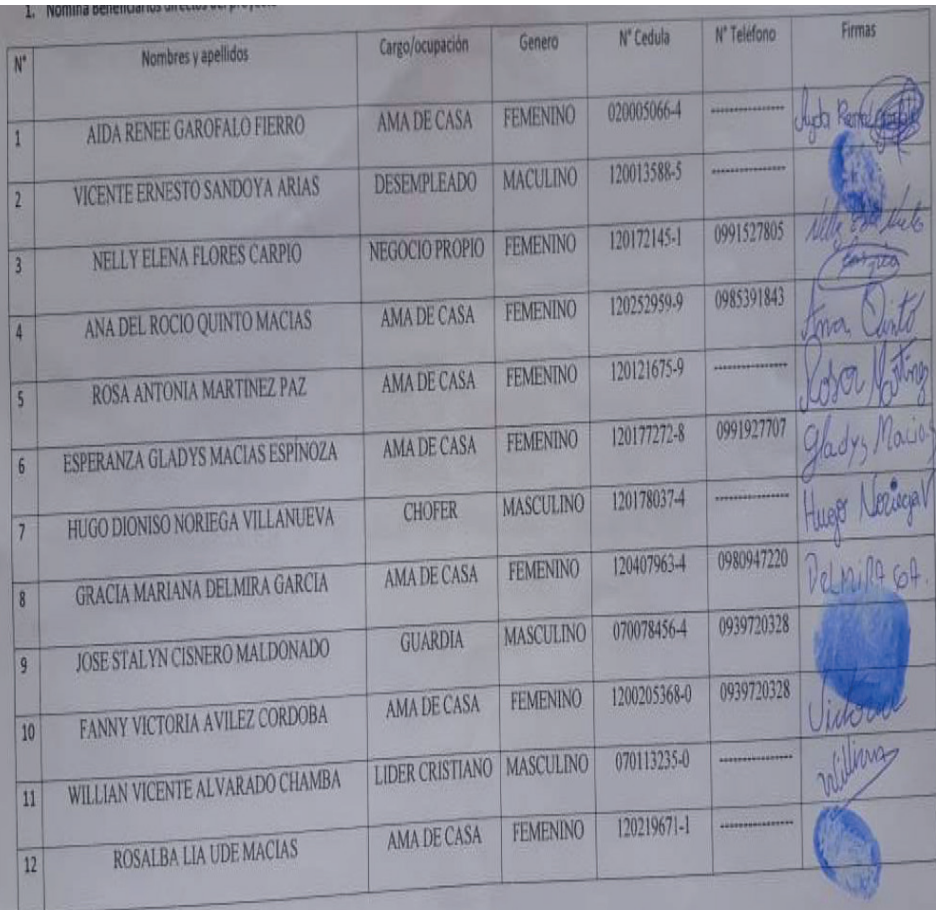 1. Nomina Beneficiarios directos del proyecto
N° Nombres y apellidos Cargo/ocupación Genero N° Cedula N° Teléfono Firmas
1 AIDA RENEE GAROFALO FIERRO AMA DE CASA FEMENINO 020005066-4 ---------------- Ayda
2 VICENTE ERNESTO SANDOYA ARIAS DESEMPLEADO MACULINO 120013588-5 ----------------
3 NELLY ELENA FLORES CARPIO NEGOCIO PROPIO FEMENINO 120172145-1 0991527805 Nelly
4 ANA DEL ROCIO QUINTO MACIAS AMA DE CASA FEMENINO 120252959-9 0985391843 Ana Quinto
5 ROSA ANTONIA MARTINEZ PAZ AMA DE CASA FEMENINO 120121675-9 ---------------- Rosa
6 ESPERANZA GLADYS MACIAS ESPINOZA AMA DE CASA FEMENINO 120177272-8 0991927707 Gladys Macias
7 HUGO DIONISO NORIEGA VILLANUEVA CHOFER MASCULINO 120178037-4 ---------------- Hugo Noriega V
8 GRACIA MARIANA DELMIRA GARCIA AMA DE CASA FEMENINO 120407963-4 0980947220 DelMiRA GA.
9 JOSE STALYN CISNERO MALDONADO GUARDIA MASCULINO 070078456-4 0939720328
10 FANNY VICTORIA AVILEZ CORDOBA AMA DE CASA FEMENINO 1200205368-0 0939720328 Victoria
11 WILLIAN VICENTE ALVARADO CHAMBA LIDER CRISTIANO MASCULINO 070113235-0 ---------------- Willian
12 ROSALBA LIA UDE MACIAS AMA DE CASA FEMENINO 120219671-1 ----------------